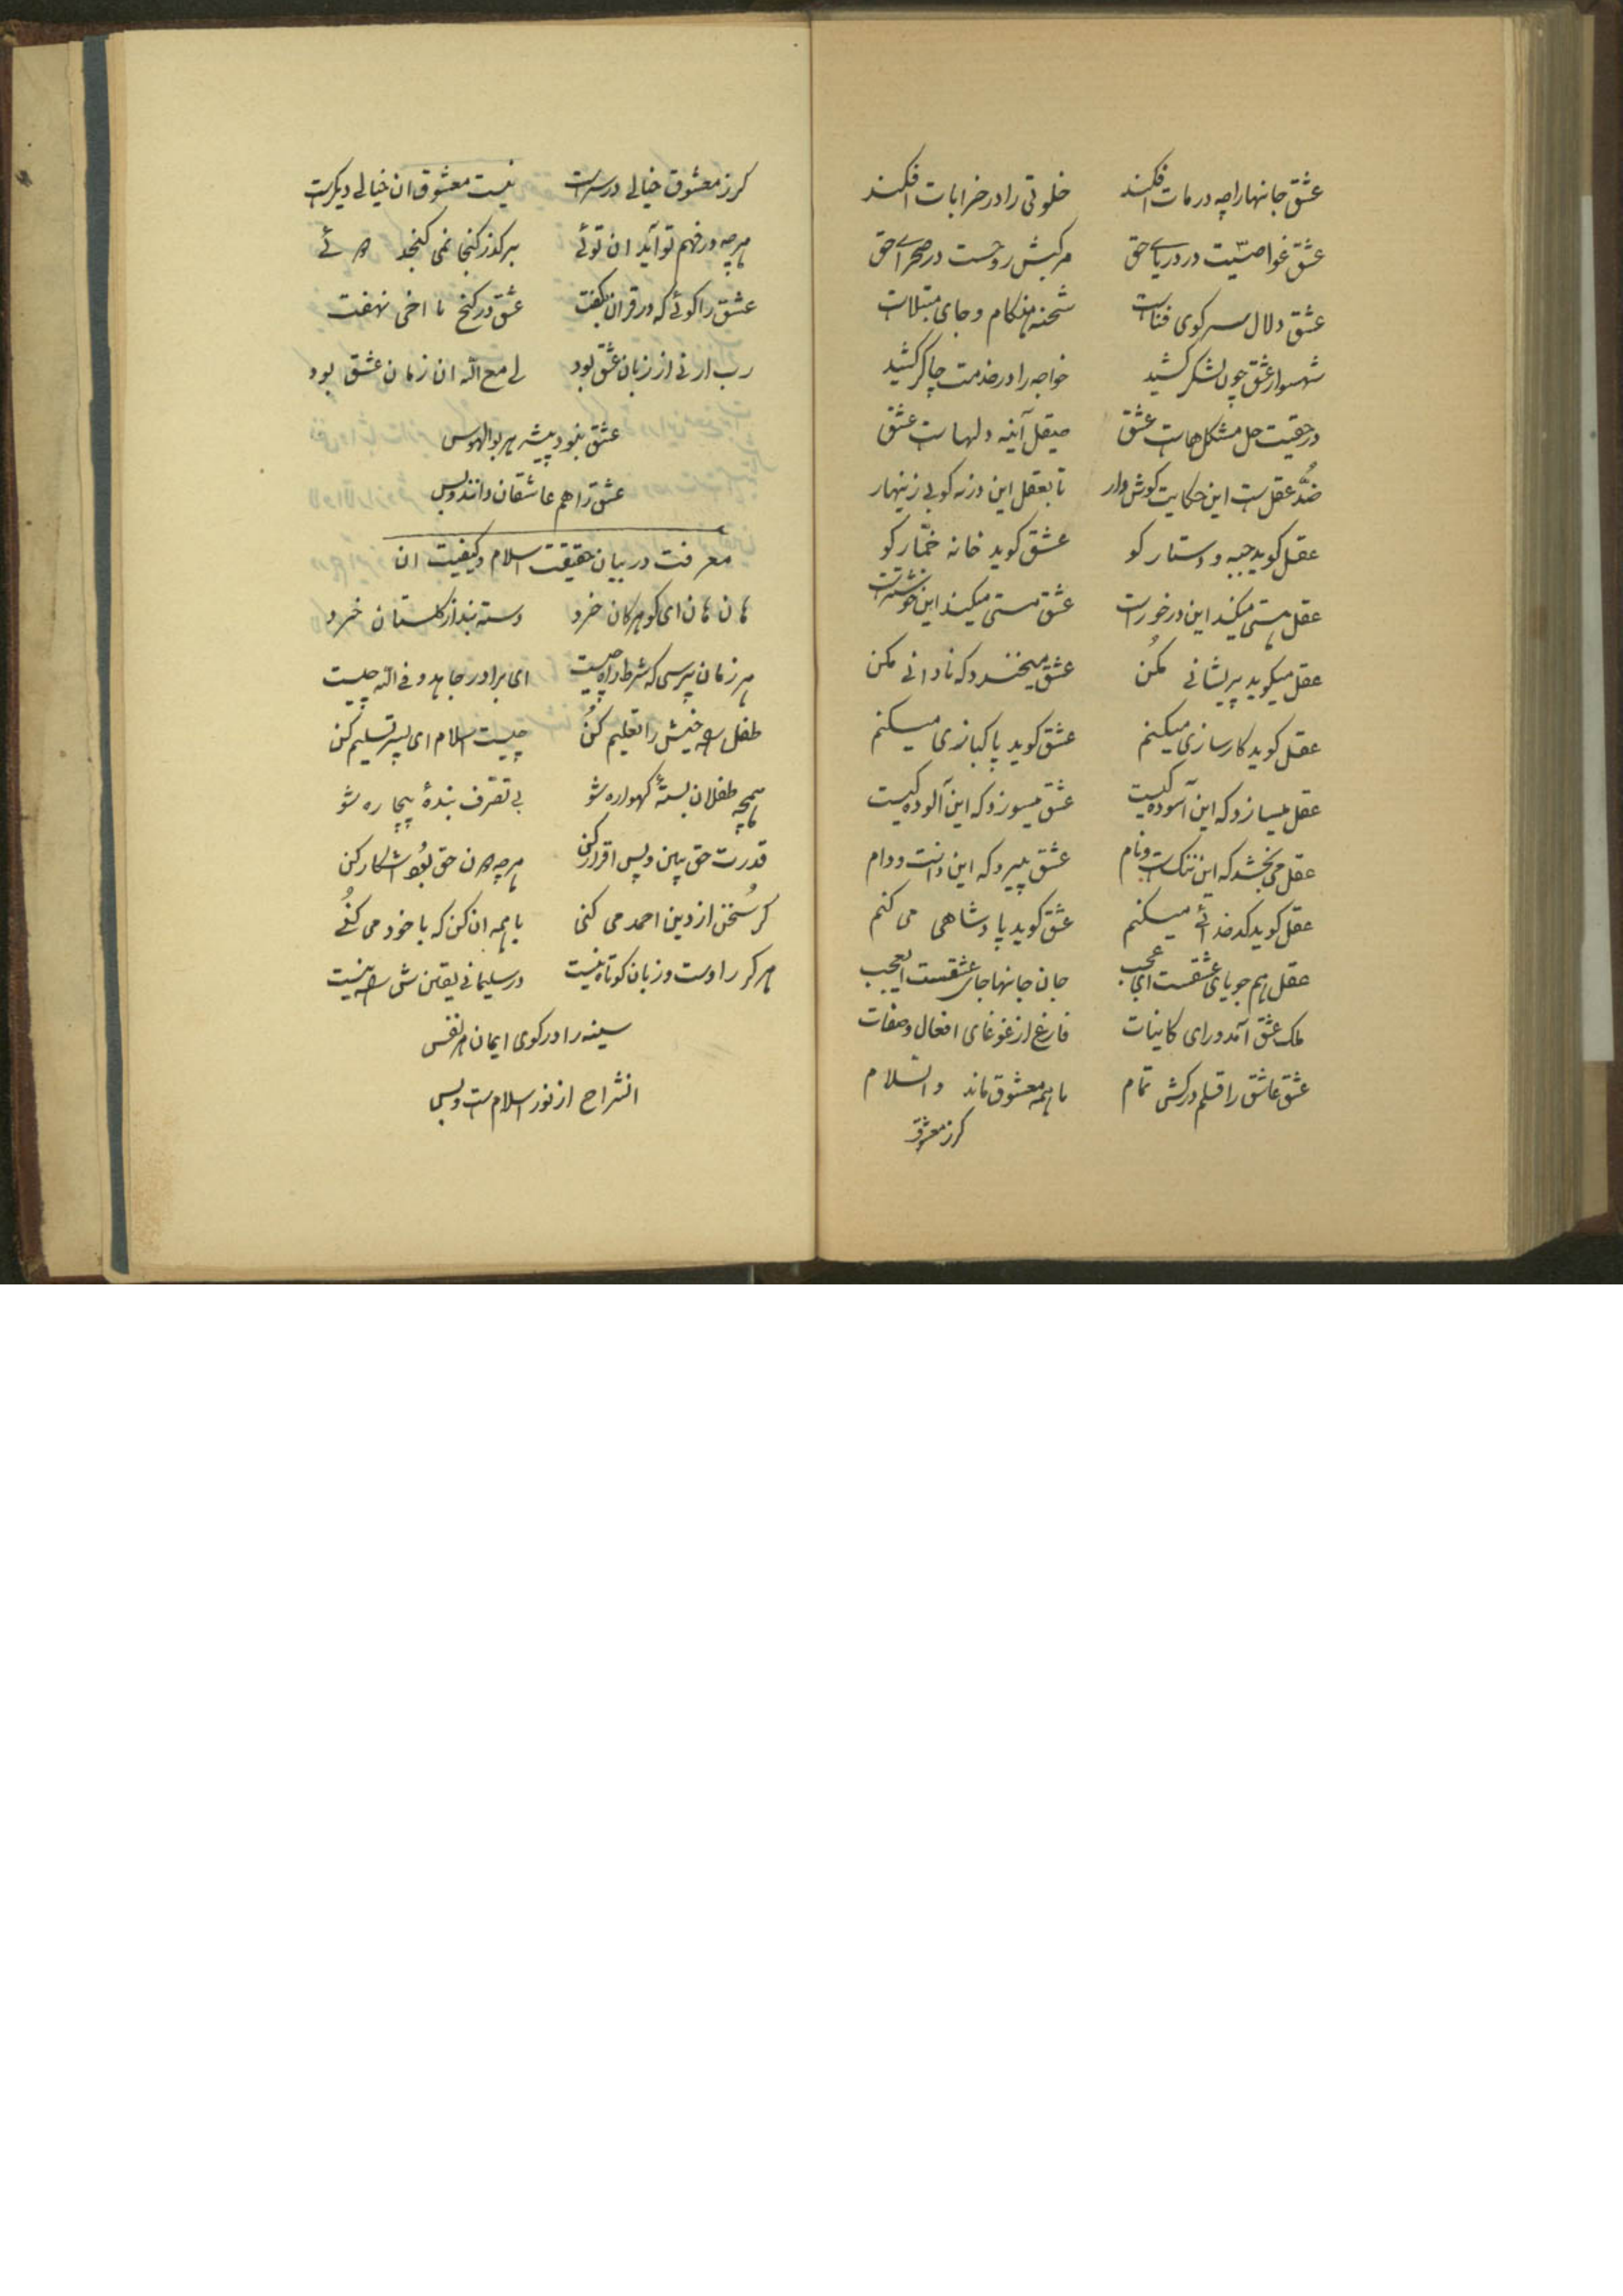 عشق جانها را چه در مات افکند خلوتی را در خرابات افکند
عشق غواصیّت در دریای حق مرکبش روحست در صحرای حق
عشق دلال سر کوی فناست شحنه هنکام و جای مبتلاست
شهسوار عشق چون لشکر کشید خواجه را در خدمت چاکر کشید
در حقیقت حل مشکل هاست عشق صیقل آینه دلهاست عشق
ضدّ عقل ست این حکایت کوش دار تا بعقل این در نه کوبی زینهار
عقل کوید جبه و دستار کو عشق کوید خانه خمّار کو
عقل هستی میکند این درخورست عشق مستی میکند این خوشترست
عقل میکوید پریشانی مکُن عشق میخندد که نادانی مکن
عقل کوید کارسازی میکنم عشق کوید پاکبازی میکنم
عقل میسازد که این آسوده کیست عشق میسوزد که این آلوده کیست
عقل می بخشد که این ننکست و نام عشق میبرد که این دانست و دام
عقل کوید کدخدائی میکنم عشق کوید پادشاهی می کنم
عقل هم جویای عشقست ای عجب جان جانها جای عشقست العجب
ملک عشق آمد ورای کاینات فارغ از غوغای افعال و صفات
عشق عاشق را قلم درکش تمام تا همه معشوق ماند والسّلام
کرز معشوق
کرز معشوق خیالی در سرست نیست معشوق ان خیالی دیکرست
هرچه در فهم تو آید ان توئی برکذر کنجا نمی کنجد
عشق را کوئی که در قران نکفت عشق در کنج ما اخی نهفت
رب ارنی از زبان عشق بود لی مع الله ان زمان عشق بود
عشق نبود پیشه هر بوالهوس
عشق را هم عاشقان دانند و بس
معرفت در بیان حقیقت اسلام و کیفیت ان
هان هان ای کوهر کان خرد دسته بند از کلستان خرد
هر زمان پرسی که شرط راه چیست ای برادر جاهدو فی الله چیست
طفل خویش را تعلیم کُن چیست اسلام ای پسر تسلیم کن
همچو طفلان بستهٔ کهواره شو بی تصرف بندهٔ بیچاره شو
قدرت حق بین و پس اقرار کن هرچه ان حق بُود اشکار کن
کر سُخن از دین احمد می کنی با همه ان کن که با خود می کُنی
هر کرا دست و زبان کوتاه نیست در سلیمانی یقین نیست
سینه را در کوی ایمان هر نفس
انشراح از نور اسلام ست و بس